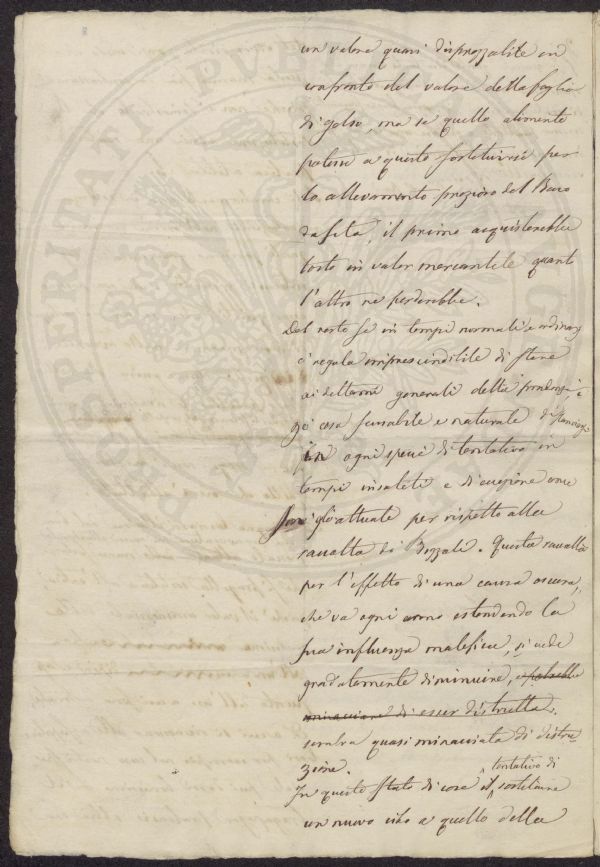 un valore quasi disprezzabile in
confronto del valore della foglia
di gelso, ma se quello alimento
potesse a questo sostituirsi per
lo allevamento prezioso del Baco
da seta, il primo acquisterebbe
tosto in valor mercantile quant
l'altro ne perderebbe.
Del resto se in tempi normali e ordinarj
è regola imprescindibile di stare
ai dettami generali della prudenza, è
cosa scusabile e naturale di slanciarsi
in ogni specie di tentativo in
tempi insoliti e di eccezione come
sono gli attuali per rispetto alla
raccolta di Bozzoli. Questa raccolta
per l'effetto di una causa oscura,
che va ogni anno estendendo la
sua influenza malefica, si vede
gradatamente diminuire, e potrebbe
minacciare di esser distrutta.
sembra quasi minacciata di distru-
zione.
tentativo di
In questo stato di cose il sostituire
un nuovo cibo a quello della
PROSPERITATI PUBLICAE